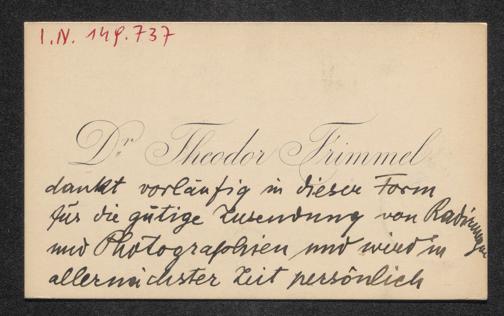 I.N. 149.737
Dr Theodor Trimmel
dankt vorläufig in dieser Form
für die gütige Zusendung von Radierungen
und Photographien und wird in
allernächster Zeit persönlich